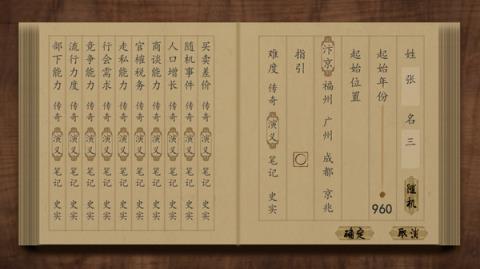 姓 张 名 三 随机
起始年份 960
起始位置
汴京 福州 广州 成都 京兆
指引
难度 传奇 演义 笔记 史实
确定 取消
买卖差价 传奇 演义 笔记 史实
随机事件 传奇 演义 笔记 史实
人口增长 传奇 演义 笔记 史实
商谈能力 传奇 演义 笔记 史实
官榷税务 传奇 演义 笔记 史实
走私能力 传奇 演义 笔记 史实
行会需求 传奇 演义 笔记 史实
竞争能力 传奇 演义 笔记 史实
流行力度 传奇 演义 笔记 史实
部下能力 传奇 演义 笔记 史实